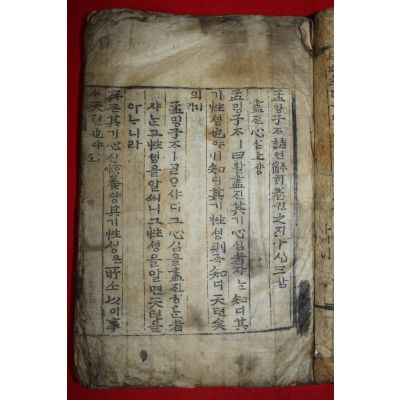 孟밍子ᄌᆞ諺언解ᄒᆡ卷권之지十십三삼
盡진心심上샹
孟밍子ᄌᆞㅣ曰왈盡진其기心심者쟈ᄂᆞᆫ知디其
기性셩也야ㅣ니知디其기性셩則즉知디天텬矣
의니라
孟밍子ᄌᆞㅣᄀᆞᆯᄋᆞ샤ᄃᆡ그心심을盡진ᄒᆞᄂᆞᆫ者
쟈ᄂᆞᆫ그性셩을알씨니그性셩을알면天텬을
아ᄂᆞ니라
存존其기心심ᄒᆞ야養양其기性셩은所소以이事
ᄉᆞ天텬也야ㅣ오